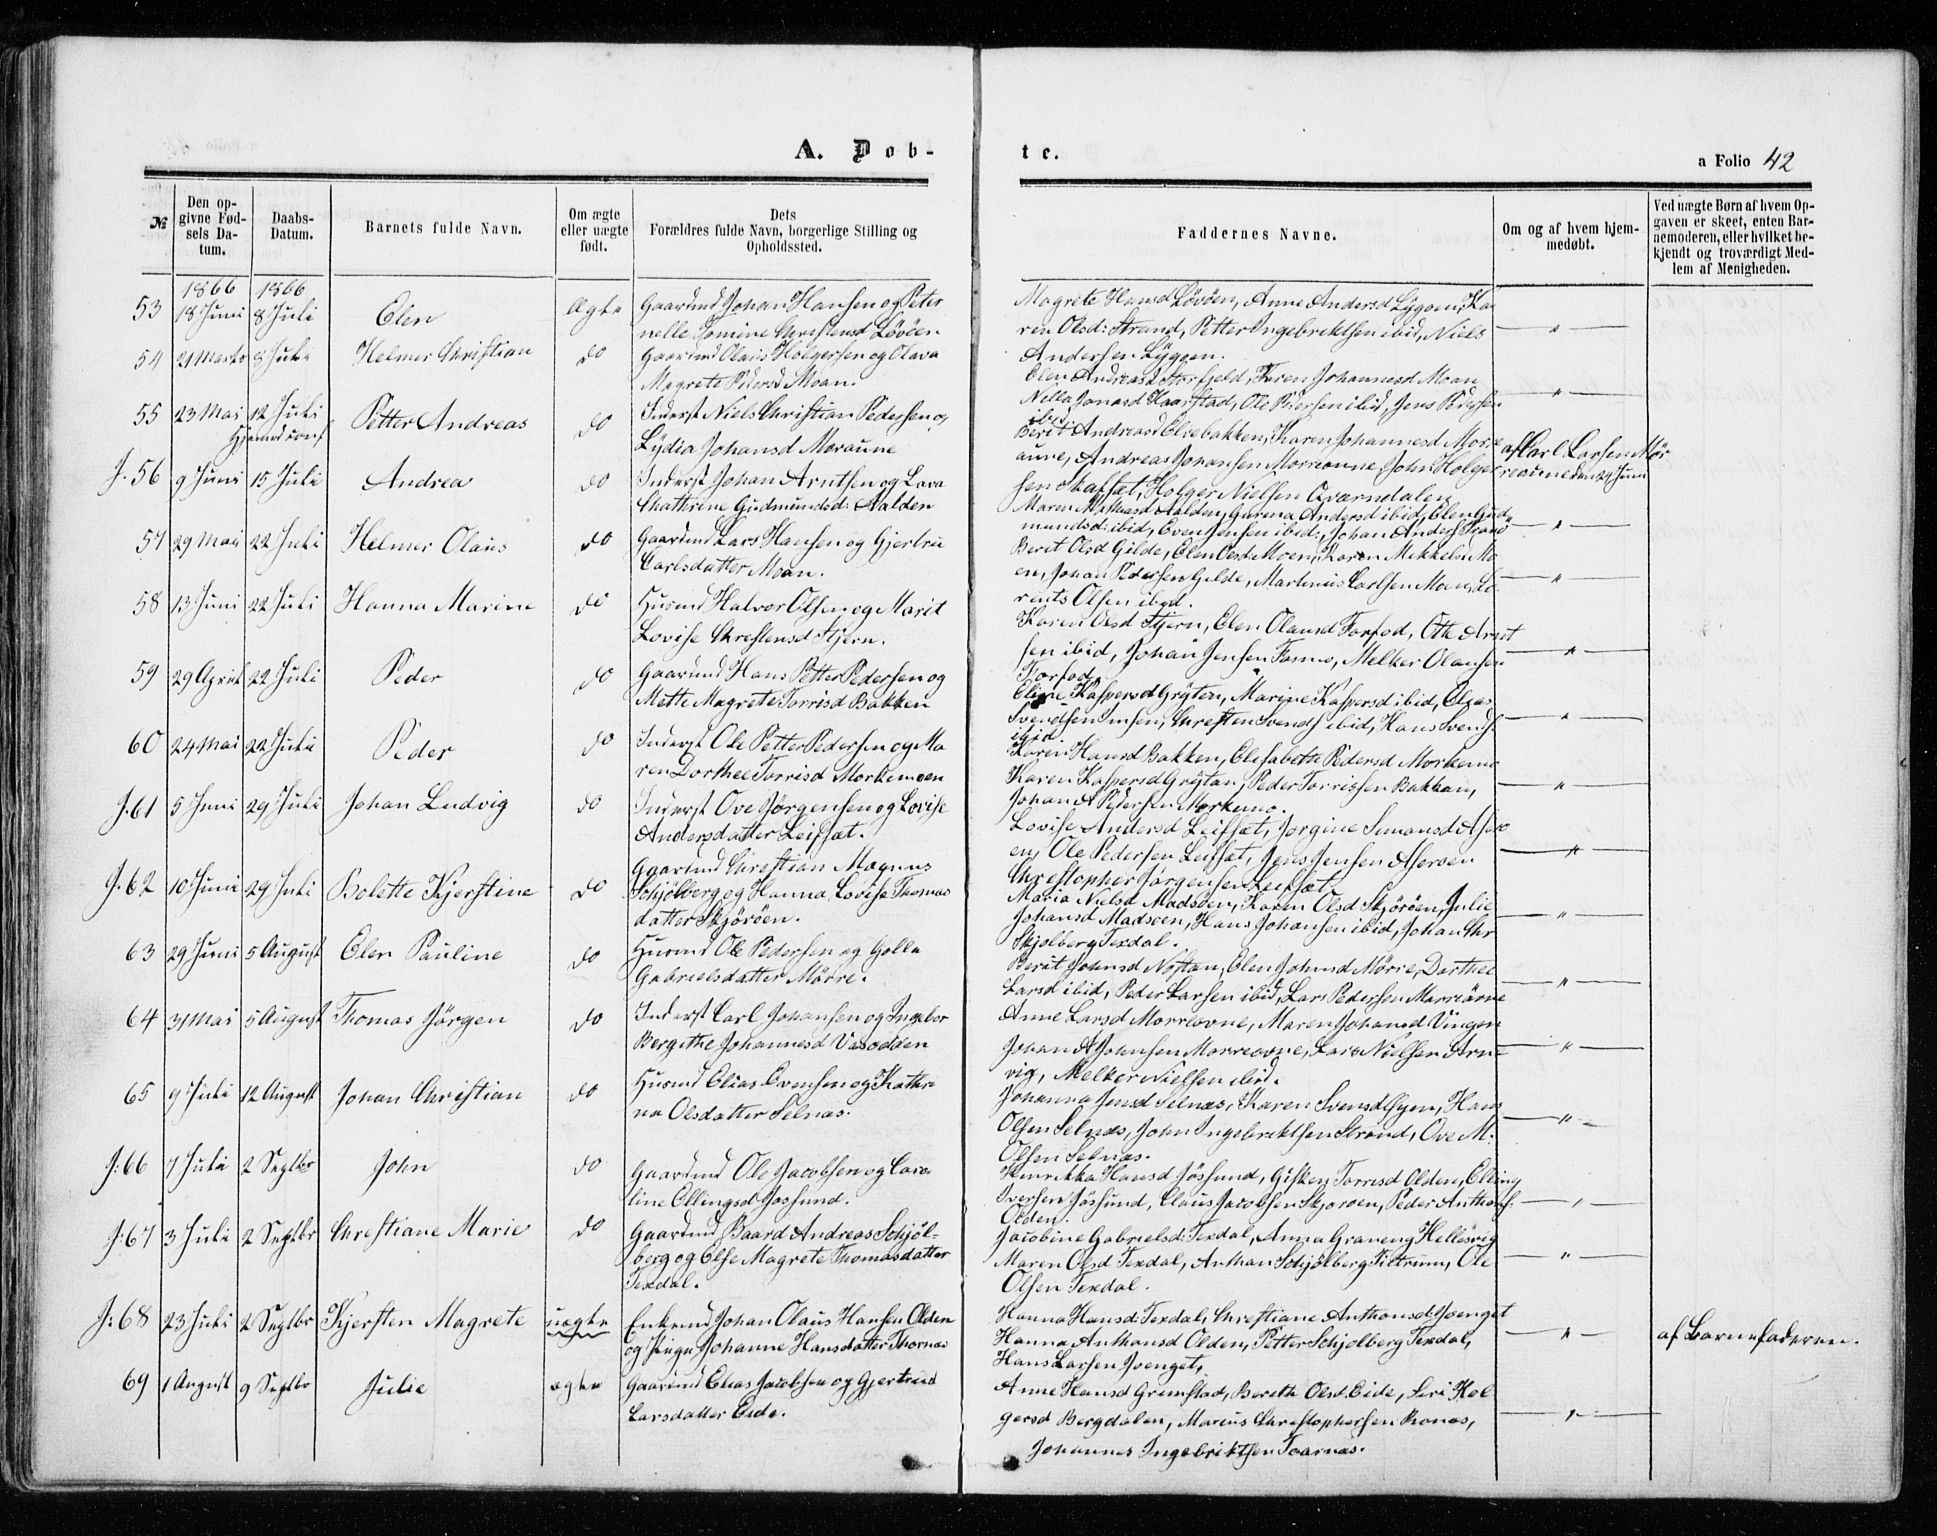 A. Døb-
te.
a Folio 42
№
Den op-
givne Fød-
sels Da-
tum.
Daabs-
Datum.
Barnets fulde Navn.
Om ægte
eller uægte
født.
Dets
Forældres fulde Navn, borgerlige Stilling og
Opholdssted.
Faddernes Navne.
Om og af hvem hjem-
medøbt.
Ved uægte Børn af hvem Op-
gaven er skeet, enten Bar-
nemoderen, eller hvilket be-
kjendt og troværdigt Med-
lem af Menigheden.
1866 1866
53 18 Juni 8 Juli Elen Ægte Gaardmd Johan Hansen og Peter
nelle Christensd Løvöen
Magrete Hansd Løvöen, Anne Andersd Lyggen, Ka
ren Olsd: Strand, Petter Ingebrektsen ibid, Niels
Andersen Lyggen.
54 21 Marts 8 Juli Helmer Christian do Gaardmd Olaus Holgersen og Olava
Magrete Pedersd Moan.
Elen Andreasd Storfjeld, Karen Johannesd Moan
Nella Jonasd Haarstad, Ole Pedersen ibid, Jens Pedersen
ibid.
55 23 Mai 12 Juli Petter Andreas do Inderst Niels Christian Pedersen og
Lydia Johansd Moraune
Berit Andreasd Elvebakken, Karen Johannesd Morre
aune, Andreas Johansen Morreaune, John Holger
sen, Holger Nielsen Qværndalen
af Carl Larsen Mør
reaune den 24 Juni
J. 56 9 Juni 15 Juli Andrea do Inderst Johan Arntsen og Lava
Chathrine Gudmundsd: Aalden
Maren Aalden, Andersd ibid, Elen Gud
mundsd: ibid, Even Jensen ibid, Johan Anders
57 29 Mai 22 Juli Helmer Olaus do Gaardmd Lars Hansen og Gjertru
Carlsdatter Moan.
Beret Olsd Gilde, Elen Olsd Moen, Karen Mo
en, Johan Pedersen Gilde, Martinus Carlsen Moan, Lo
rents Olsen ibid.
58 13 Juni 22 Juli Hanna Marine do Husmd Halvor Olsen og Marit
Lovise Christensd Stjern.
Karen Olsd Stjern, Elen Olausd Forfod, Otte Arnt
sen ibid, Johan Jensen, Melker Olausen
Forfod.
59 29 April 22 Juli Peder do Gaardmd Hans Petter Pedersen og
Mette Magrete Torrisd Bakken
Eline Kaspersd Gryten, Marine Kaspersd ibid, Elias
Svendsen, Christen Svends ibid, Hans Svends
ibid
60 24 Mai 22 Juli Peder do Inderst Ole Petter Pedersen og Ma
ren Dorthee Torrisd Morkemoen
Karen Hansd Bakken, Elisabeth Pedersd Morkemo
Karen Kaspersd Grytan, Peder Torrissen Bakkan,
Johan A Pedersen Morkemo.
J. 61 5 Juni 29 Juli Johan Ludvig do Inderst Ove Jørgensen og Lovise
Andersdatter Leifsæt.
Lovise Andersd Leifsæt, Jorgine Simonsd
en, Ole Pedersen Leifsæt, Jens Jensen
Christopher Jørgensen Leifsæt.
J. 62 10 Juni 29 Juli Bolette Kjerstine do Gaardmd Christian Magnus
Schjølberg og Hanna Lovise Thomas
datter Skjøröen.
Maria Nielsd Madsöen, Karen Olsd Skjøröen, Julie
Johansd Madsöen, Hans Johansen ibid, Johan Chr
Skjølberg Texdal.
63 29 Juni 5 August Elen Pauline do Husmd Ole Pedersen og Golla
Gabrielsdatter Mörre.
Berit Johnsd, Elen Johnsd Mörre, Dorthee
Larsd ibid, Peder Larsen ibid, Lars Pedersen Morreaune
64 31 Mai 5 August Thomas Jörgen do Inderst Carl Johansen og Ingebor
Bergithe Johannesd Vasodden
Anne Larsd Morreovne, Maren Johansd Vingen
Johan A Johnsen Morreovne, Lars Nielsen Arn
vig, Melker Nielsen ibid.
65 9 Juli 12 August Johan Christian do Husmd Elias Evensen og Kathri
na Olsdatter Selnæs.
Johanna Jensd Selnæs, Karen Svensd, Hans
Olsen Selnæs, John Ingebrektsen Strand, Ove M.
Olsen Selnæs.
J. 66 7 Juli 2 Septbr John do Gaardmd Ole Jacobsen og Caro
line Ellingsd Jössund.
Henrikka Hansd Jössund, Gisken Torrisd Olden, Elling
Iversen Jössund, Claus Jacobsen Skjøroen, Peder Anthons
Olden.
J. 67 3 Juli 2 Septbr Christiane Marie do Gaardmd Baard Andreas Schjöl-
berg og Else Magrete Thomasdatter
Texdal.
Jacobine Gabrielsd: Texdal, Anna Graveng Hellesvig
Maren Olsd Texdal, Anthon Schjølberg Tiltrum, Ole
Olsen Texdal.
J. 68 23 Juli 2 Septbr Kjersten Magrete uægte Enkemd Johan Olaus Hansen Olden
og Pige Johanne Hansdatter
Hanna Hansd Texdal, Christiane Anthonsd Ivenget
Hanna Anthonsd Olden, Petter Schjølberg Texdal,
Hans Larsen Ivenget.
af Barnefaderen.
69 1 August 9 Septbr Julie ægte Gaardmd Elias Jacobsen og Gjertrud
Larsdatter Eide.
Anne Hansd Gremstad, Berethe Olsd. Eide, Siri Hol
gersd Bergdalen, Marius Christophersen,
Johannes Ingebriktsen.